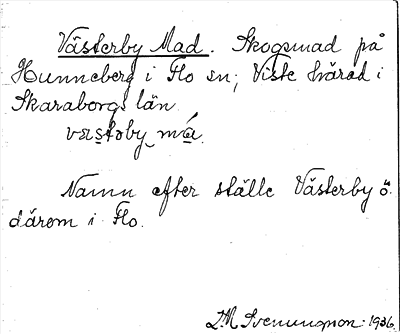 Västerby Mad. Skogsmad på
Hunneberg i Flo sn; Viste härad i
Skaraborgs län
Namn efter ställe Västerby ö.
därom i Flo.
D.M Svenungson. 1936.